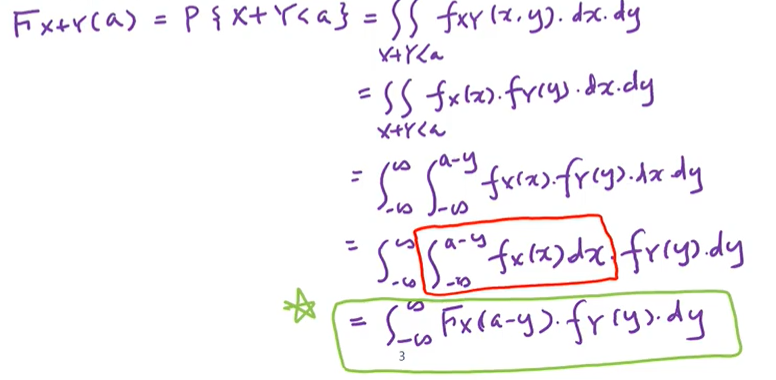 F_{X+Y}(a) = P{X+Y<a} = ∬_{X+Y<a} f_{XY}(x,y).dx.dy
= ∬_{X+Y<a} f_X(x).f_Y(y).dx.dy
= ∫_{-∞}^{∞} ∫_{-∞}^{a-y} f_X(x).f_Y(y).dx dy
= ∫_{-∞}^{∞} ∫_{-∞}^{a-y} f_X(x)dx.f_Y(y).dy
= ∫_{-∞}^{∞} F_X(a-y).f_Y(y).dy
3